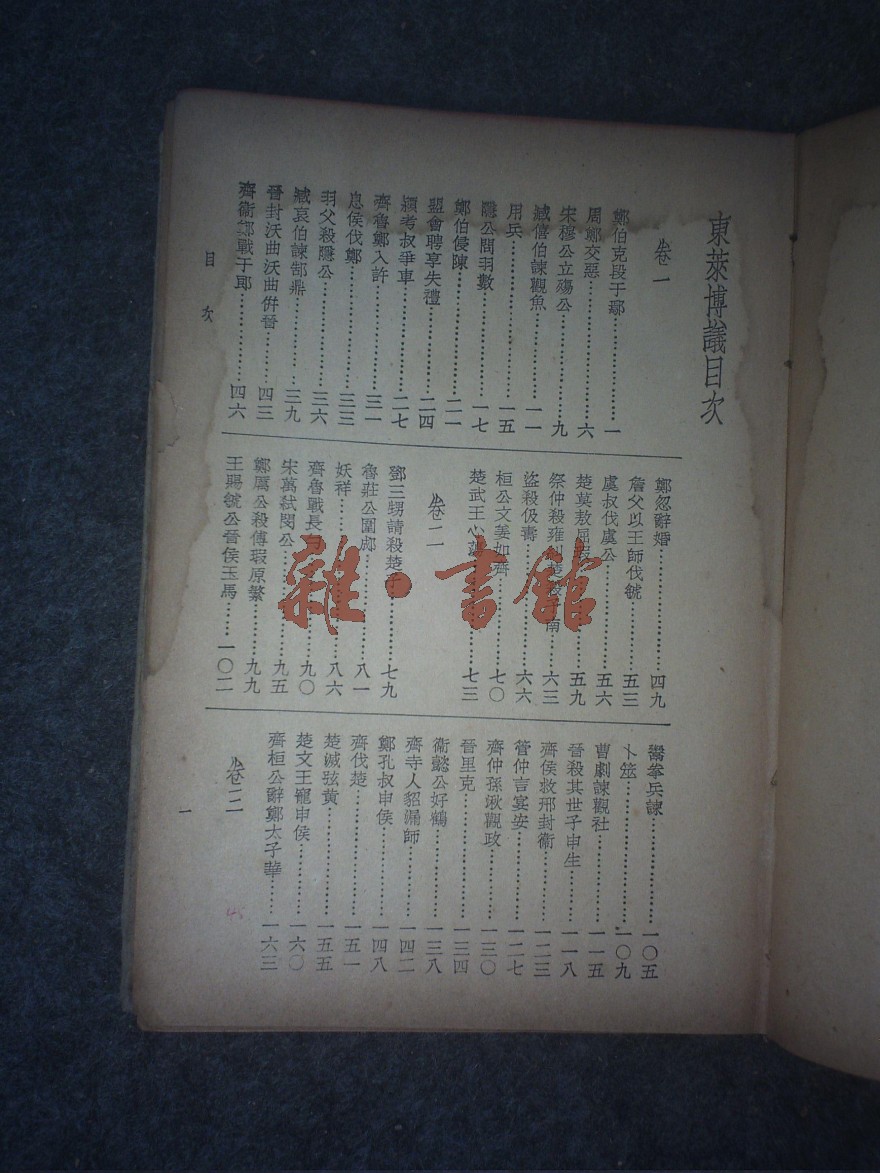 東萊博議目次
卷一
鄭伯克段于鄢……一
周鄭交惡……六
宋穆公立殤公……九
臧僖伯諫觀魚……一一
用兵……一五
隱公問羽數……一七
鄭伯侵陳……二一
盟會聘享失禮……二四
潁考叔爭車……二七
齊魯鄭入許……三一
息侯伐鄭……三三
羽父殺隱公……三六
臧哀伯諫郜鼎……三九
晉封沃曲沃曲併晉……四三
齊衞鄭戰于郎……四六
鄭忽辭婚……四九
詹父以王師伐虢……五三
虞叔伐虞公……五六
楚莫敖屈瑕……五九
祭仲殺雍糾……南……六三
盜殺伋壽……六六
桓公文姜如齊……七〇
楚武王心蕩……七三
卷二
鄧三甥請殺楚子……七九
魯莊公圍郕……八一
妖祥……八六
齊魯戰長勺……九〇
宋萬弑閔公……九五
鄭厲公殺傅瑕原繁……九九
王賜虢公晉侯玉馬……一〇二
鬻拳兵諫……一〇五
卜筮……一〇九
曹劌諫觀社……一一五
晉殺其世子申生……一一八
齊侯救邢封衞……一二三
管仲言宴安……一二七
齊仲孫湫觀政……一三〇
晉里克……一三四
衞懿公好鶴……一三八
齊寺人貂漏師……一四二
鄭孔叔申侯……一四八
齊伐楚……一五一
楚滅弦黃……一五五
楚文王寵申侯……一六〇
齊桓公辭鄭太子華……一六三
卷三
目次
一
雜·書館